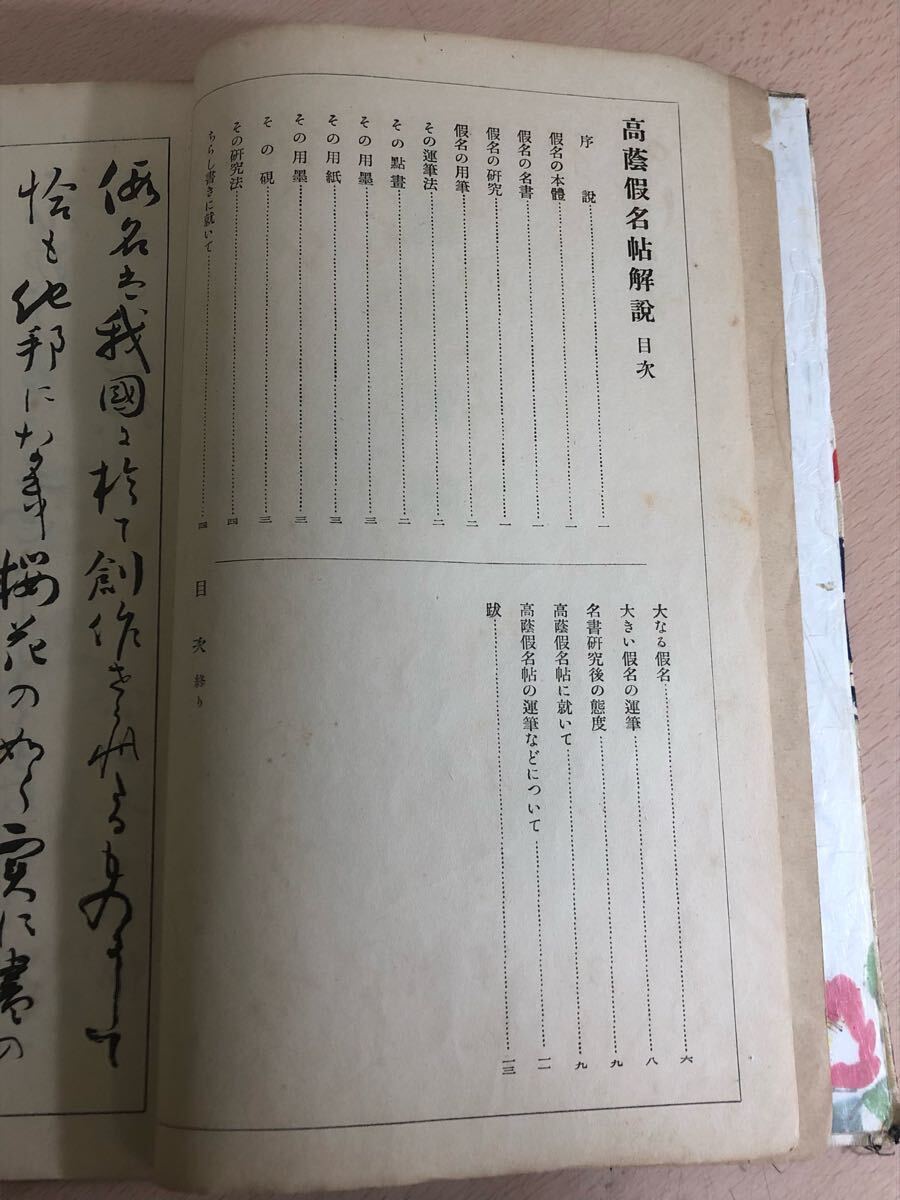 高蔭假名帖解說 目次
序說 一
假名の本體 一
假名の名書 一
假名の硏究 一
假名の用筆 二
その運筆法 二
その點畫 二
その用墨 三
その用紙 三
その用墨 三
その硯 三
その硏究法 四
ちらし書きに就いて 四
大なる假名 六
大きい假名の運筆 八
名書硏究後の態度 九
高蔭假名帖に就いて 九
高蔭假名帖の運筆などについて 一一
跋 一三
目次 終り
假名は我國に於て創作されたるものにして
恰も他邦になき櫻花の如く實に書の